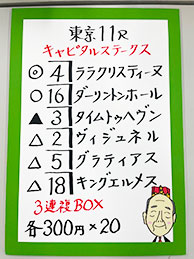 東京11R
キャピタルステークス
◎ 4 ララクリスティーヌ
○ 16 ダーリントンホール
▲ 3 タイムトゥヘヴン
△ 2 ヴィジュネル
△ 5 グラティアス
△ 18 キングエルメス
3連複BOX
各300円×20